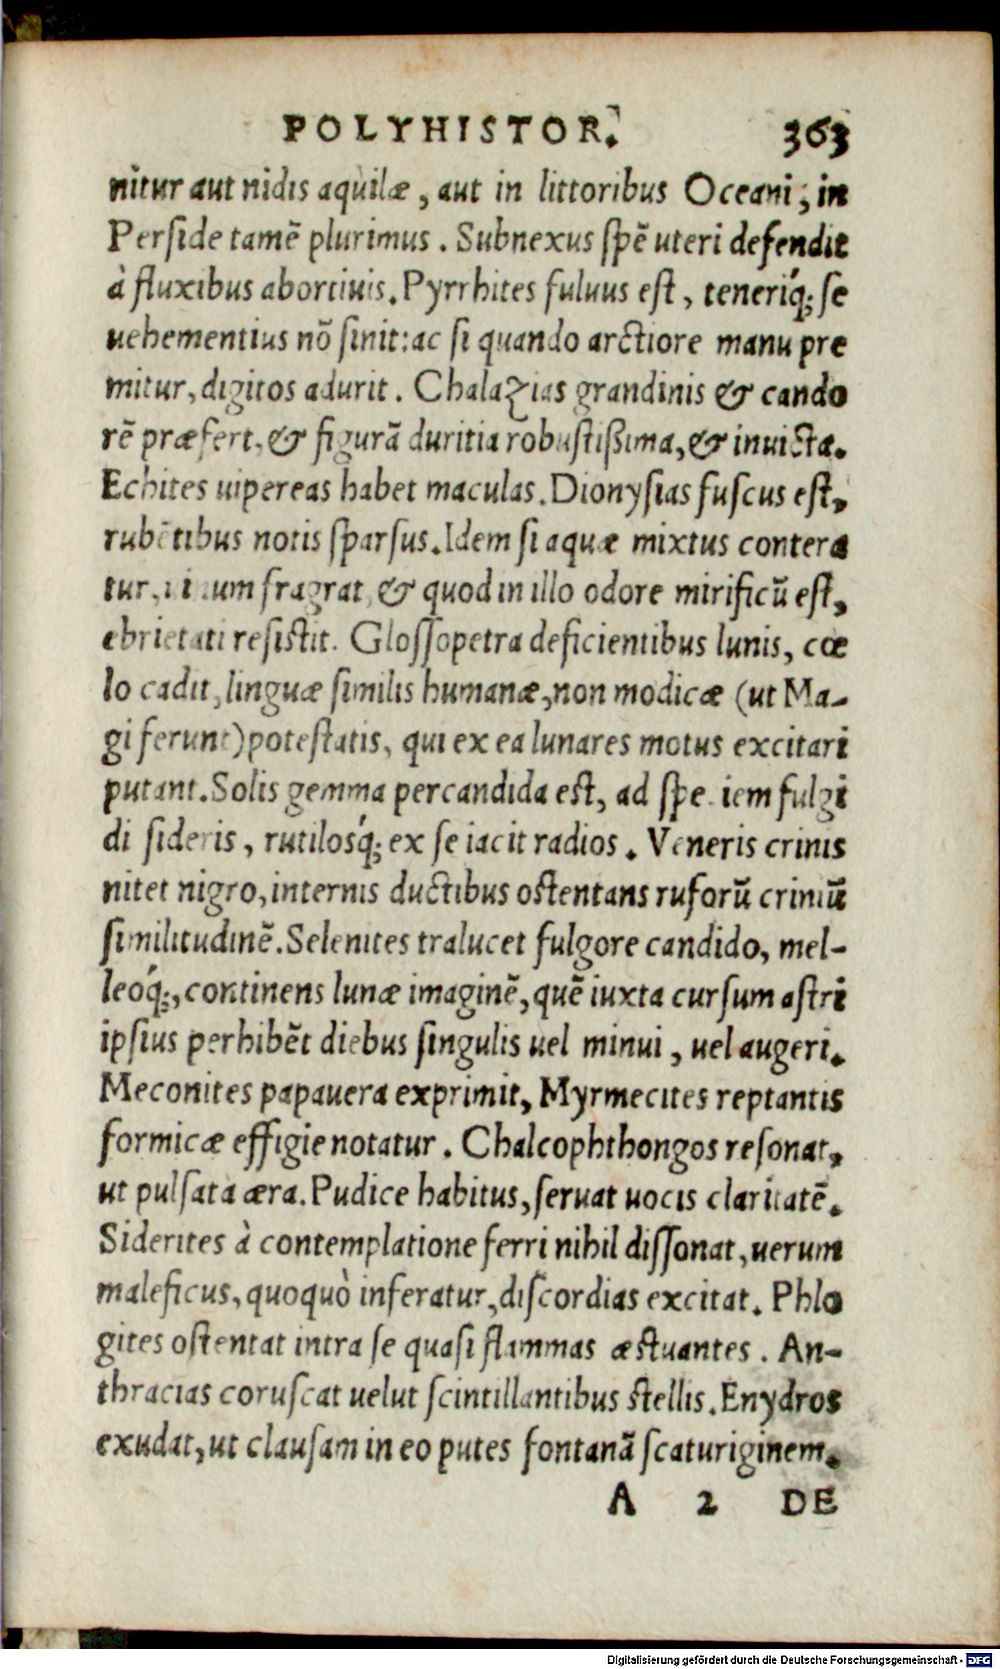 POLYHISTOR. 363
nitur aut nidis aquilæ, aut in littoribus Oceani, in
Perside tamē plurimus. Subnexus ſpē uteri defendit
à fluxibus abortiuis. Pyrrhites fuluus eſt, teneriq́; ſe
uehementius nō ſinit: ac ſi quando arctiore manu pre
mitur, digitos adurit. Chalazias grandinis & cando
rē præfert, & figurā duritia robuſtißima, & inuicta.
Echites uipereas habet maculas. Dionyſias fuſcus eſt,
rubētibus notis ſparſus. Idem ſi aquæ mixtus contera
tur, uinum fragrat, & quod in illo odore mirificū eſt,
ebrietati reſiſtit. Gloſſopetra deficientibus lunis, cœ
lo cadit, linguæ ſimilis humanæ, non modicæ (ut Ma-
gi ferunt) poteſtatis, qui ex ea lunares motus excitari
putant. Solis gemma percandida eſt, ad ſpeciem fulgi
di ſideris, rutiloſq́; ex ſe iacit radios. Veneris crinis
nitet nigro, internis ductibus oſtentans ruforū criniū
ſimilitudinē. Selenites tralucet fulgore candido, mel-
leoq́;, continens lunæ imaginē, quē iuxta curſum aſtri
ipſius perhibēt diebus ſingulis uel minui, uel augeri.
Meconites papauera exprimit, Myrmecites reptantis
formicæ effigie notatur. Chalcophthongos reſonat,
ut pulſata æra. Pudice habitus, ſeruat uocis claritatē.
Siderites à contemplatione ferri nihil diſſonat, uerum
maleficus, quoquò inferatur, diſcordias excitat. Phlo
gites oſtentat intra ſe quaſi flammas æſtuantes. An-
thracias coruſcat uelut ſcintillantibus ſtellis. Enydros
exudat, ut clauſam in eo putes fontanā ſcaturiginem.
A 2 DE
Digitalisierung gefördert durch die Deutsche Forschungsgemeinschaft - DFG